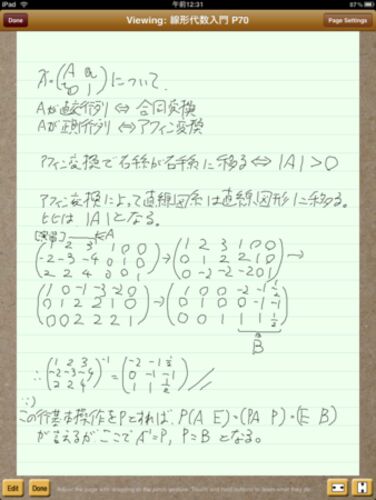 iPad 午前12:31 87%
Done Viewing: 線形代数入門 P70 Page Settings
Ã=(A a
0 1)について.
Aが直交行列 ⇔ 合同変換
Aが正則行列 ⇔ アフィン変換
アフィン変換で右手系が右手系に移る ⇔ |A|>0
アフィン変換によって直線図系は直線図形に移る。
比は |A|となる。
[演習]
(1 2 3 1 0 0 (1 2 3 1 0 0
-2 -3 -4 0 1 0 → 0 1 2 2 1 0 →
2 2 4 0 0 1) 0 -2 -2 -2 0 1)
(1 0 -1 -3 -2 0 (1 0 0 -2 -1 1/2
0 1 2 2 1 0 → 0 1 0 0 -1 -1
0 0 2 2 2 1) 0 0 1 1 1 1/2)
B
∴ (1 2 3 (-2 -1 1/2
-2 -3 -4 )⁻¹ = 0 -1 -1
2 2 4 1 1 1/2) //
∵)
この行基本操作をPとすれば, P(A E)=(PA P)=(E B)
が言えるがここで A⁻¹=P, P=B となる。
Edit Done Adjust the page with dragging or the pinch gesture. Touch and hold buttons to learn what they do.